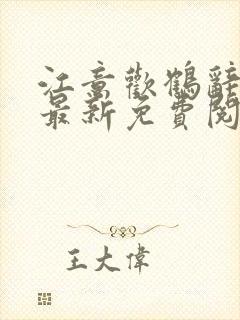 江童歡鶴辭
最新免費閱
王大偉